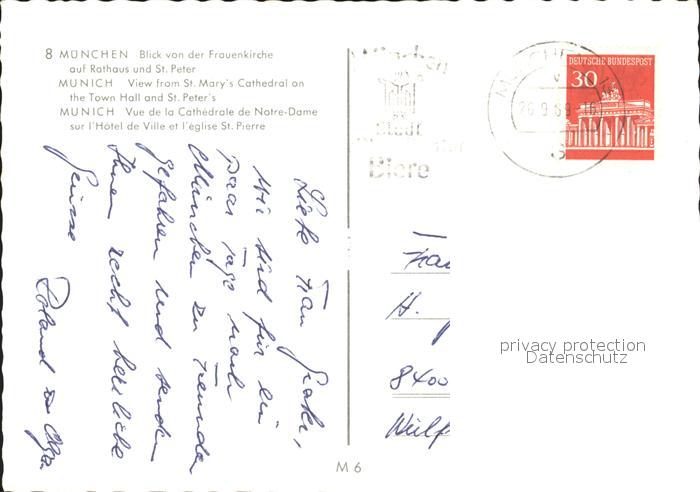 8 MÜNCHEN Blick von der Frauenkirche
auf Rathaus und St. Peter
MUNICH View from St. Mary's Cathedral on
the Town Hall and St. Peter's
MUNICH Vue de la Cathédrale de Notre-Dame
sur l'Hôtel de Ville et l'église St. Pierre
München
Stadt
Biere
26.9.69-16
DEUTSCHE BUNDESPOST
30
Liebe Frau
Wir sind für ein
paar Tage nach
München zu Freunden
gefahren und senden
Ihnen recht herzliche
Grüsse
Roland u. Olga
H.
8400
privacy protection
Datenschutz
M 6